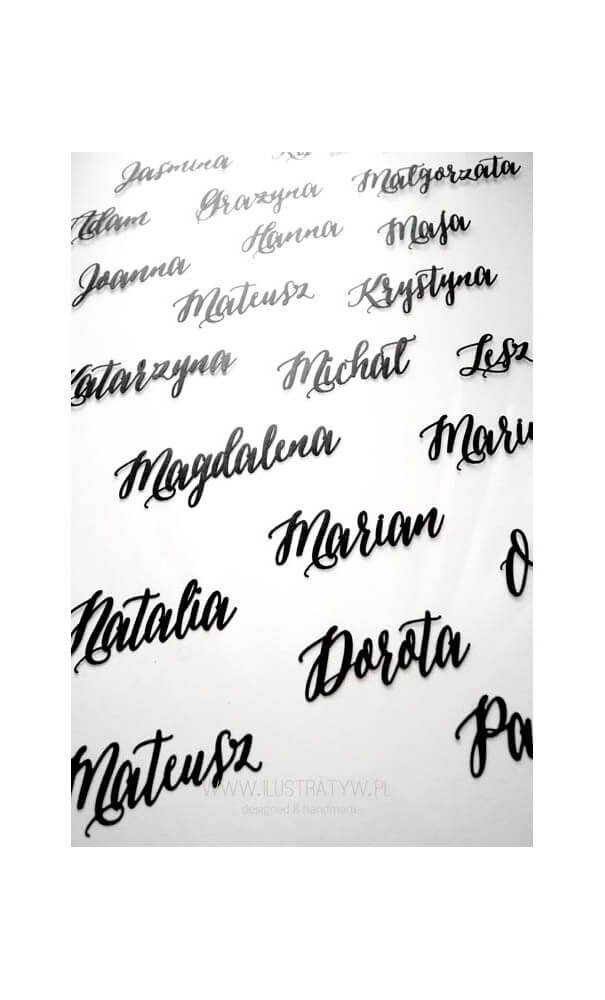 Jasmina
Małgorzata
Adam Grażyna
Hanna Maja
Joanna
Mateusz Krystyna
Katarzyna Michał Lesz
Magdalena Mariu
Marian
O
Natalia
Dorota
Pa
Mateusz
WWW.ILUSTRATYW.PL
designed & handmade